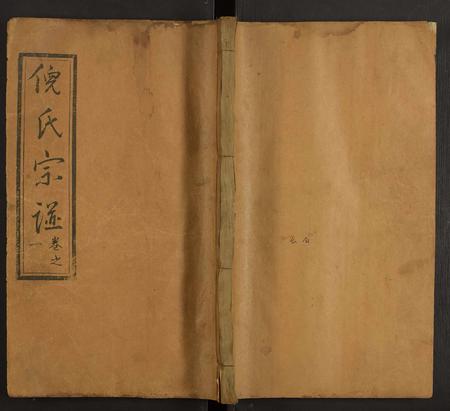 倪氏宗譜
卷之一